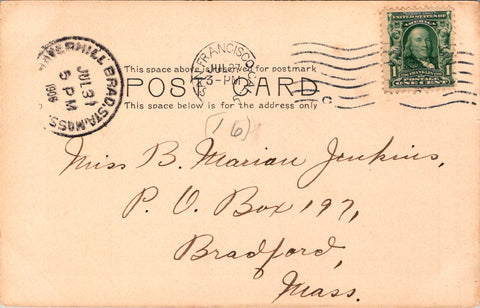 HAVERHILL BRAD. STA. MASS.
JUL 31
5 PM
1905
SAN FRANCISCO, CAL.
JUL 27
3-PM
UNITED STATES OF AMERICA
1 FRANKLIN 1
POSTAGE
ONE CENT
This space above is reserved for postmark
POST CARD
This space below is for the address only
(16)
Miss B. Marion Jenkins,
P. O. Box 197,
Bradford,
Mass.